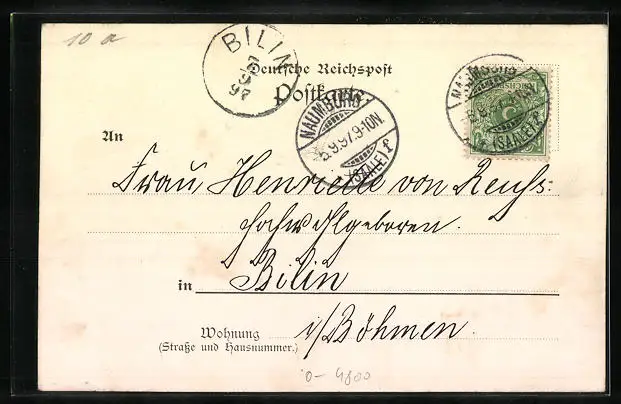 10 a
BILIN
97
Deutsche Reichspost
Postkarte.
NAUMBURG
5.9.97.9-10N.
(SAALE) f
NAUMBURG
(SAALE) f
5
An
Frau Henriette von Reuss:
Hochwohlgeboren.
in Bilin
Wohnung i/Böhmen.
(Straße und Hausnummer.)
0-4800